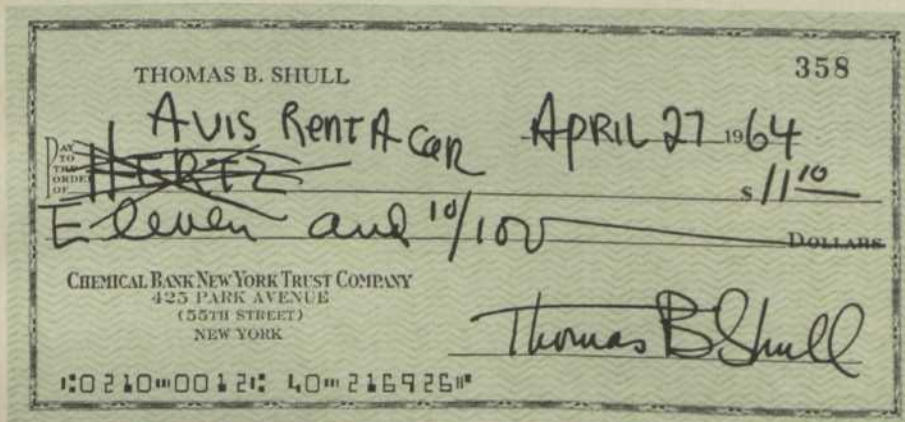 THOMAS B. SHULL
358
AVIS RENT A CAR
APRIL 27 1964
PAY TO THE ORDER OF HERTZ
$ 11 10
Eleven and 10/100 DOLLARS
CHEMICAL BANK NEW YORK TRUST COMPANY
425 PARK AVENUE
(55TH STREET)
NEW YORK
Thomas B Shull
⑆0210⑉0012⑆ 40⑉216926⑈